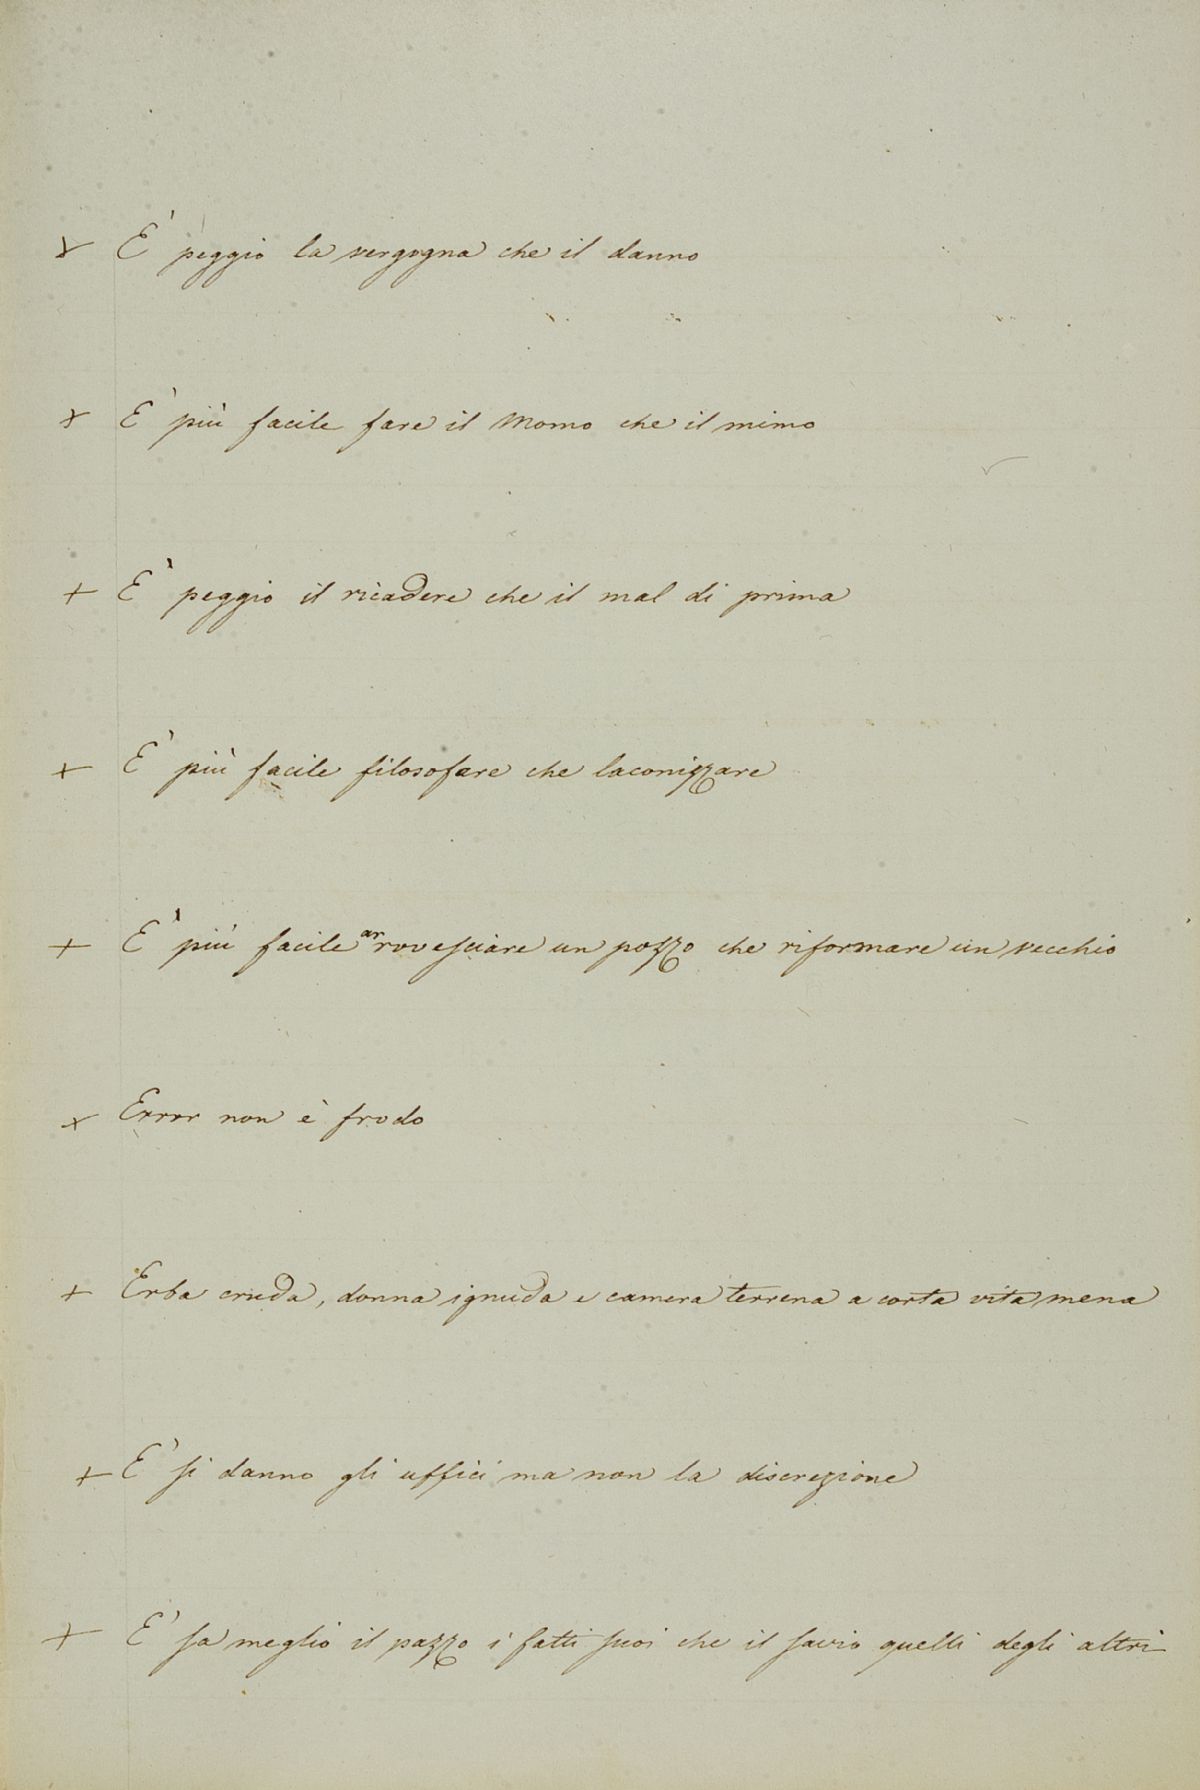 + E' peggio la vergogna che il danno
+ E' più facile fare il Momo che il mimo
+ E' peggio il ricadere che il mal di prima
+ E' più facile filosofare che laconizzare
+ E' più facile arrovesciare un pozzo che riformare un vecchio
+ Error non è frodo
+ Erba cruda, donna ignuda e camera terrena a corta vita mena
+ E' si danno gli uffici ma non la discrezione
+ E' sa meglio il pazzo i fatti suoi che il savio quelli degli altri